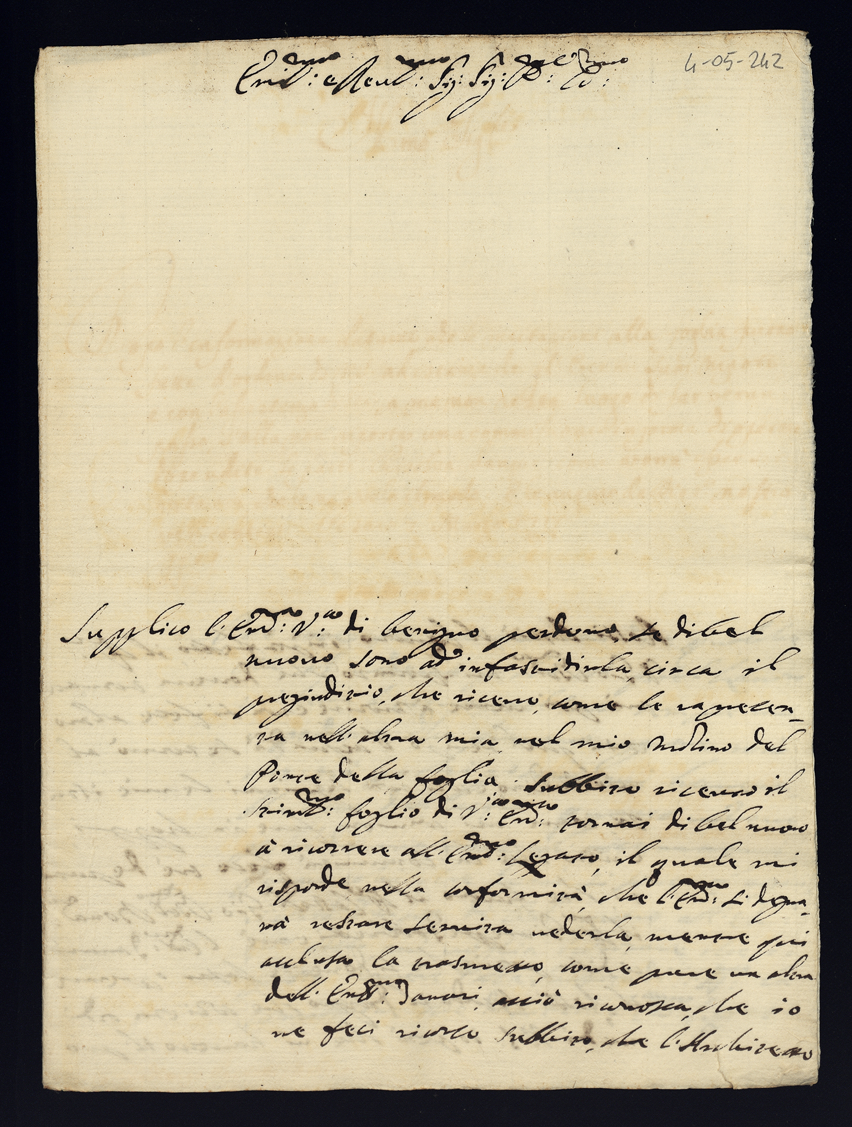 4-05-242
Em.mo e Rev.mo Sig: Sig: P.ne Col.mo
Supplico l'Em.za V.ra di benigno perdono, se di bel
nuovo sono ad infastidirla, circa il
pregiudizio, che ricevo, come le rapresen-
tai nell'altra mia, nel mio Molino del
Ponte della foglia. Subbito ricevuto il
foglio di V.ra Em.za tornai di bel nuovo
à ricorrere all'Em.mo Legato, il quale mi
rispose nella conformità, che l'Em.za si degna-
rà restare servita vederla, mentre qui
acclusa la trasmetto, come pure un altra
dell'Em.mo Tanari, acciò riconosca, che io
ne feci ricorso subbito, che l'Architetto